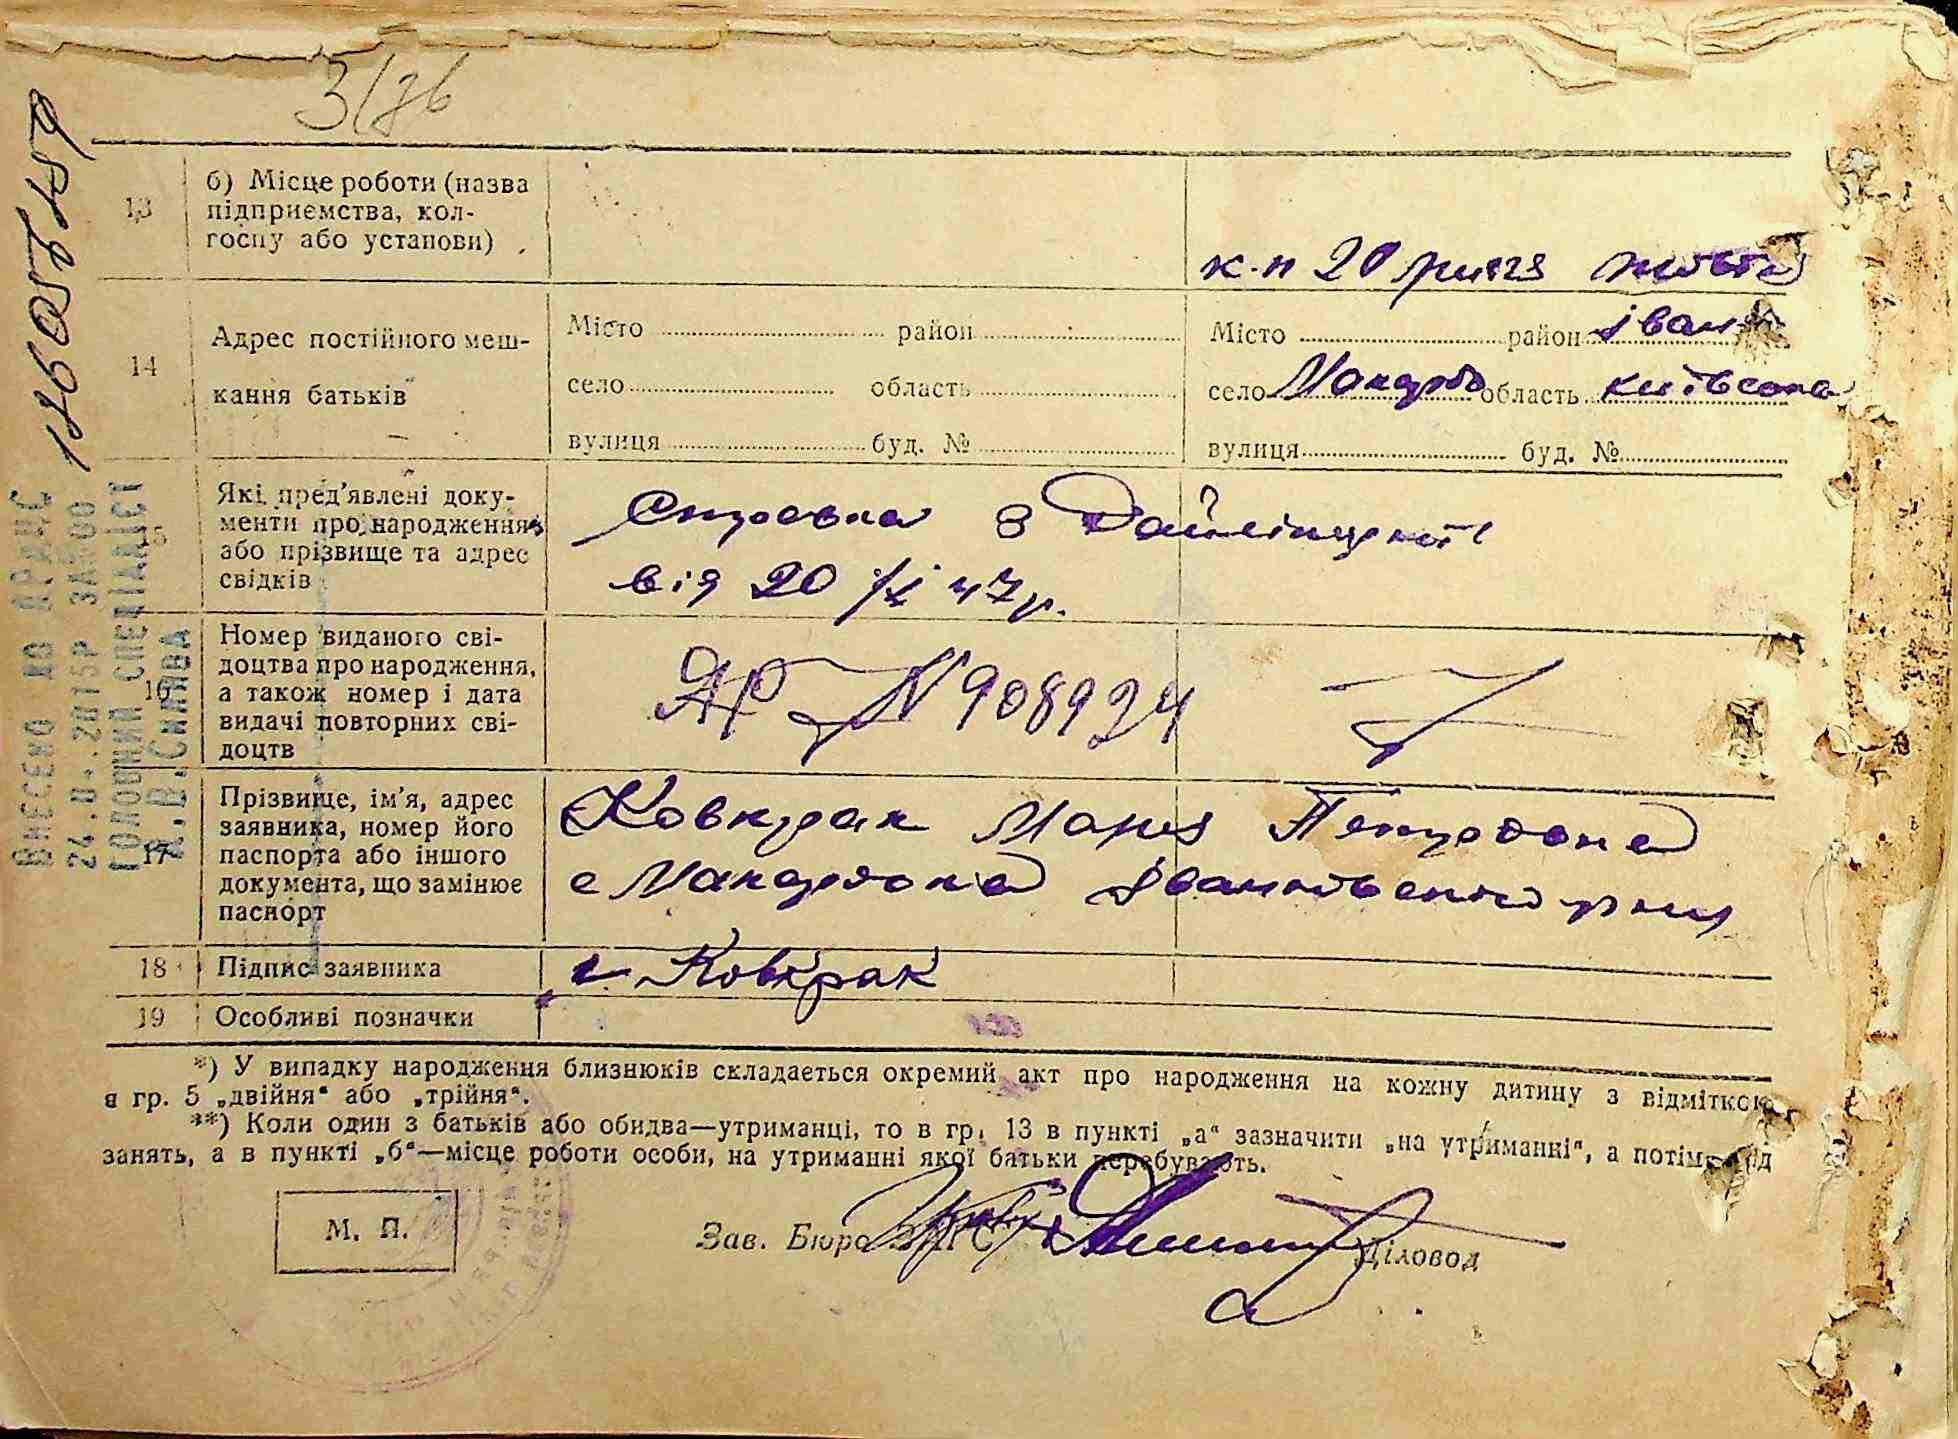 3/76
13 б) Місце роботи (назва
підприємства, кол-
госпу або установи)
к-п 20 риччя жовтня
14 Адрес постійного меш-
кання батьків
Місто район
село область
вулиця буд. №
Місто район Іванк
село Макарово область київська
вулиця буд. №
15 Які пред'явлені доку-
менти про народження
або прізвище та адрес
свідків
Справка з
від 20/X 47 р.
16 Номер виданого сві-
доцтва про народження,
а також номер і дата
видачі повторних сві-
доцтв
ЯР N 908924
17 Прізвище, ім'я, адрес
заявника, номер його
паспорта або іншого
документа, що замінює
паспорт
Ковкрак Марія
с Іванківського р-ну
18 Підпис заявника
Ковкрак
19 Особливі позначки
*) У випадку народження близнюків складається окремий акт про народження на кожну дитину з відміткою
в гр. 5 „двійня“ або „трійня“.
**) Коли один з батьків або обидва—утриманці, то в гр. 13 в пункті „а“ зазначити „на утриманні“, а потім рід
занять, а в пункті „б“—місце роботи особи, на утриманні якої батьки перебувають.
М. П.
Зав. Бюро ЗАГС Діловод
ВНЕСЕНО ДО ДРАЦС
ГОЛОВНИЙ СПЕЦІАЛІСТ